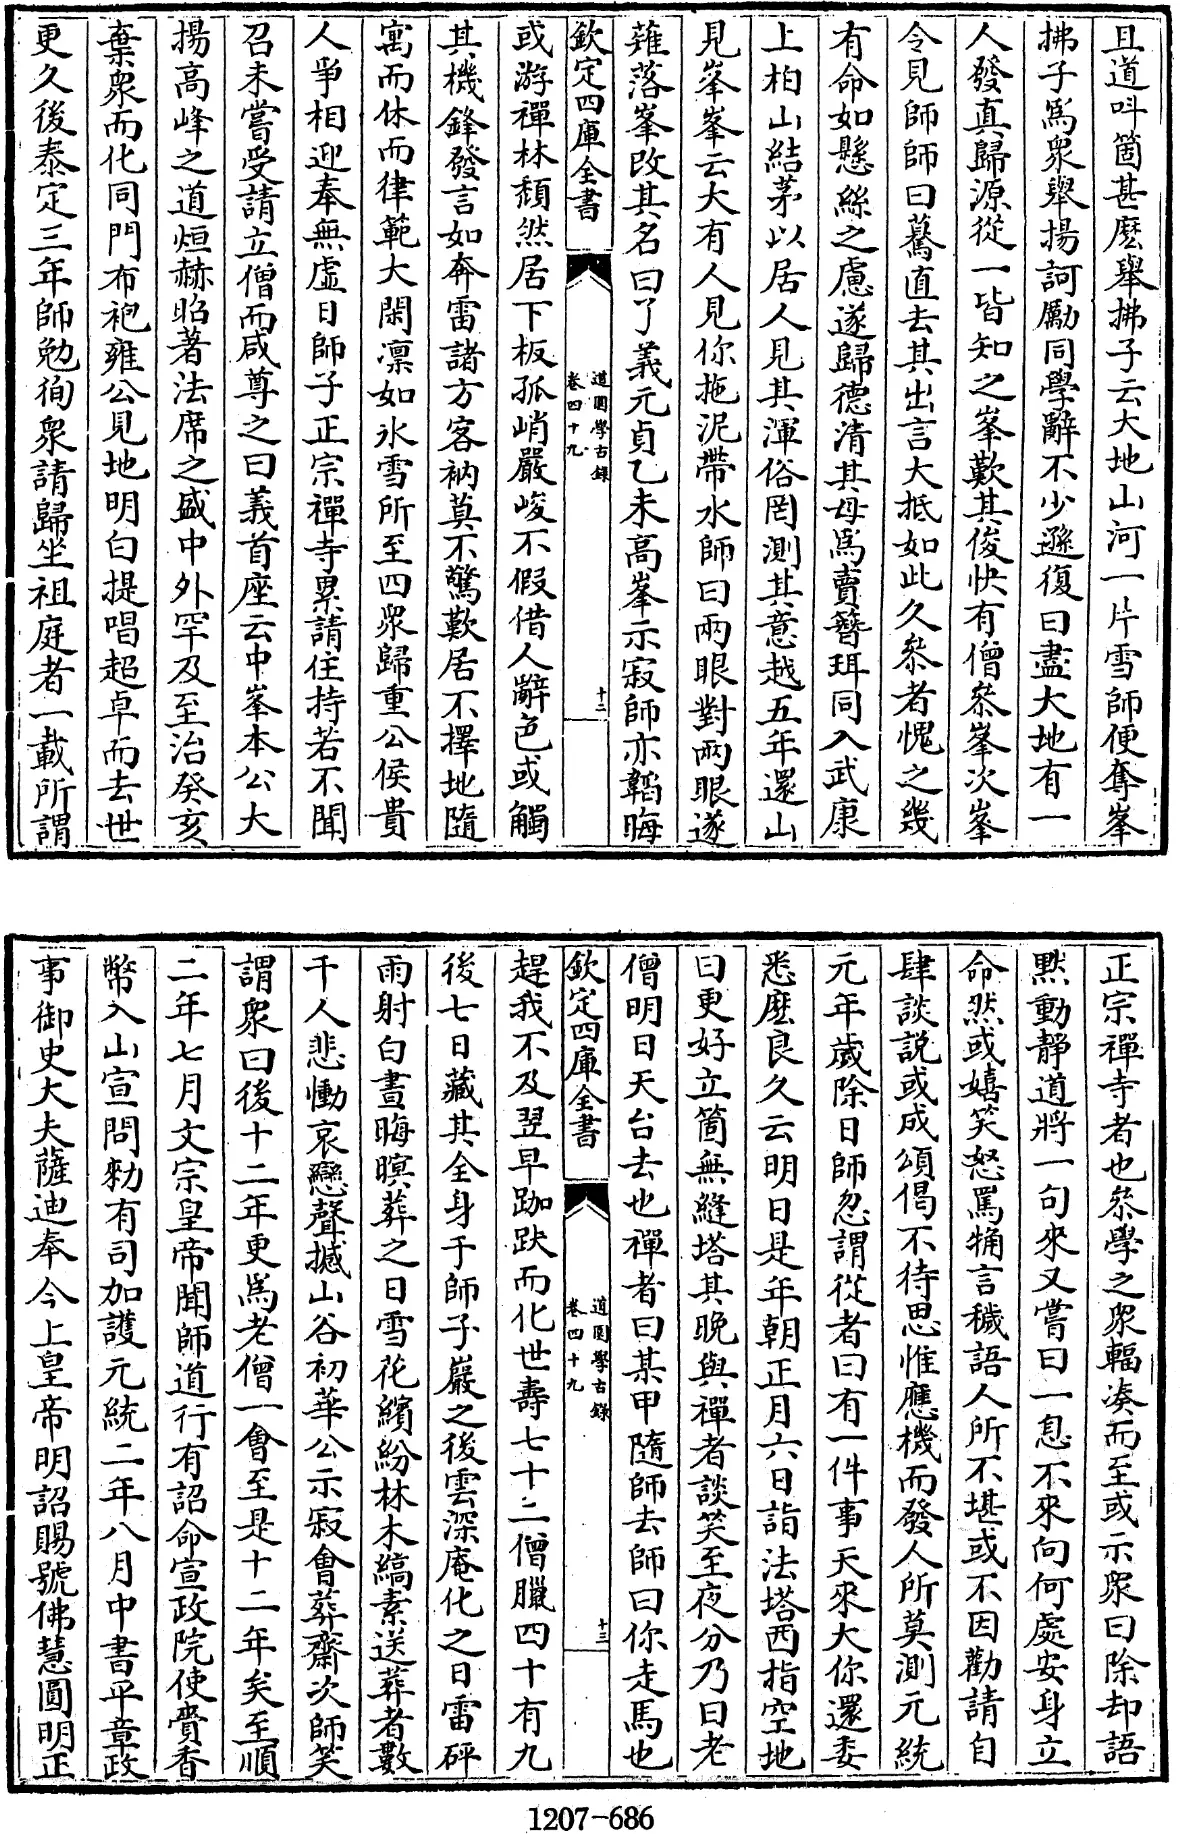 且道叫箇甚麽舉拂子云大地山河一片雪師便奪峯
拂子爲衆舉揚訶勵同學辭不少遜復曰盡大地有一
人發真歸源從一皆知之峯歎其俊快有僧叅峯次峯
令見師師曰驀直去其出言大抵如此久叅者愧之幾
有命如懸絲之慮遂歸德清其母爲賣簪珥同入武康
上柏山結茅以居人見其渾俗罔測其意越五年還山
見峯峯云大有人見你拖泥帶水師曰兩眼對兩眼遂
薙落峯改其名曰了義元貞乙未高峯示寂師亦韜晦
欽定四庫全書
道園學古録
卷四十九
十二
或游禪林頽然居下板孤峭嚴峻不假借人辭色或觸
其機鋒發言如奔雷諸方客衲莫不驚歎居不擇地隨
寓而休而律範大閑凛如氷雪所至四衆歸重公侯貴
人爭相迎奉無虛日師子正宗禪寺累請住持若不聞
召未嘗受請立僧而咸尊之曰義首座云中峯本公大
揚高峰之道烜赫昭著法席之盛中外罕及至治癸亥
棄衆而化同門布衲雍公見地明白提唱超卓而去世
更久後泰定三年師勉徇衆請歸坐祖庭者一載所謂
正宗禪寺者也叅學之衆輻湊而至或示衆曰除却語
黙動靜道將一句來又嘗曰一息不來向何處安身立
命然或嬉笑怒罵觕言穢語人所不堪或不因勸請自
肆談說或成頌偈不待思惟應機而發人所莫測元統
元年歲除日師忽謂從者曰有一件事天來大你還委
悉麽良久云明日是年朝正月六日詣法塔西指空地
曰更好立箇無縫塔其晚與禪者談笑至夜分乃曰老
僧明日天台去也禪者曰某甲隨師去師曰你走馬也
欽定四庫全書
道園學古録
卷四十九
十三
趕我不及翌早跏趺而化世壽七十二僧臘四十有九
後七日藏其全身于師子巖之後雲深庵化之日雷砰
雨射白晝晦暝葬之日雪花繽紛林木縞素送葬者數
千人悲慟哀戀聲撼山谷初華公示寂會葬齋次師笑
謂衆曰後十二年更爲老僧一會至是十二年矣至順
二年七月文宗皇帝聞師道行有詔命宣政院使賫香
幣入山宣問勑有司加護元統二年八月中書平章政
事御史大夫薩迪奉今上皇帝明詔賜號佛慧圓明正
1207-686